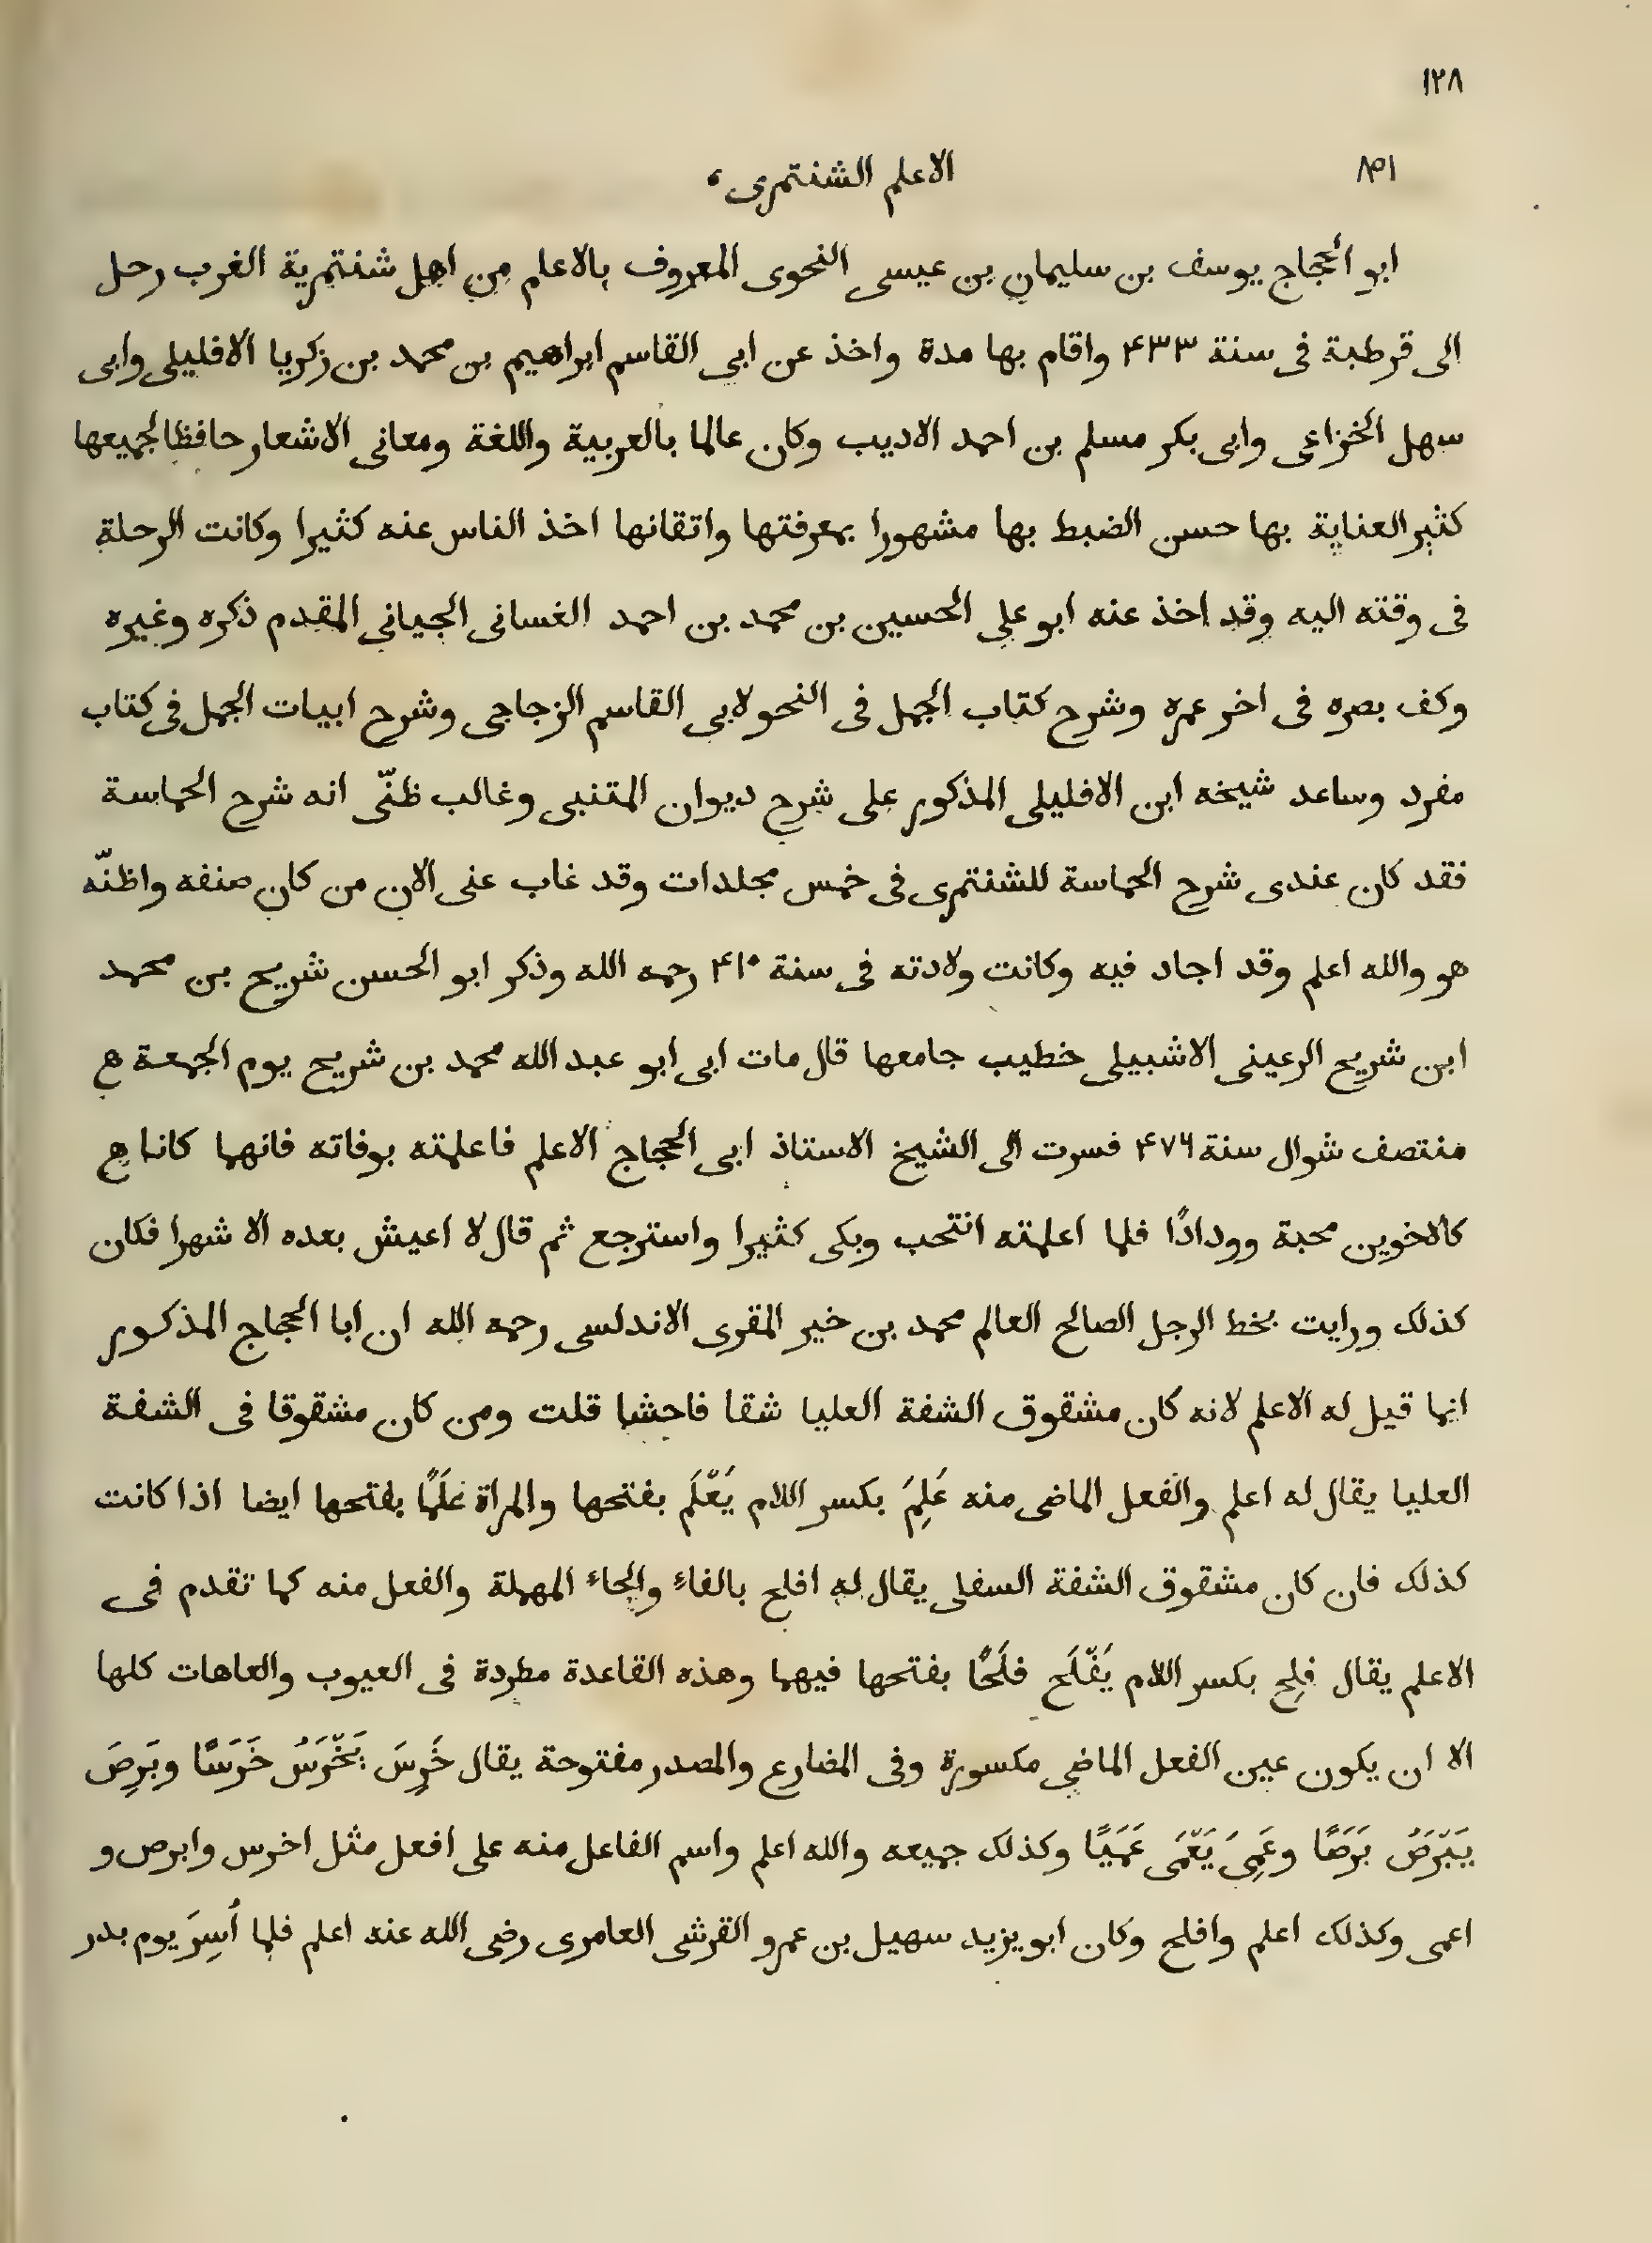 ١٢٨
الاعلم الشنتمرى،
ابو الحجاج يوسف بن سليمان بن عيسى النحوى المعروف بالاعلم من اهل شنتمرية الغرب رحل
الى قرطبة فى سنة ۴٣٣ واقام بها مدة واخذ عن ابى القاسم ابراهيم بن محمد بن زكريا الافليلى وابى
سهل الخزاعى وابى بكر مسلم بن احمد الاديب وكان عالما بالعربية واللغة ومعانى الاشعار حافظا لجميعها
كثير العناية بها حسن الضبط بها مشهورا بمعرفتها واتقانها اخذ الناس عنه كثيرا وكانت الرحلة
فى وقته اليه وقد اخذ عنه ابو على الحسين بن محمد بن احمد الغسانى الجيانى المقدم ذكره وغيره
وكف بصره فى اخر عمره وشرح كتاب الجمل فى النحو لابى القاسم الزجاجى وشرح ابيات الجمل فى كتاب
مفرد وساعد شيخه ابن الافليلى المذكور على شرح ديوان المتنبى وغالب ظنّى انه شرح الحماسة
فقد كان عندى شرح الحماسة للشنتمرى فى خمس مجلدات وقد غاب عنى الان من كان صنفه واظنّه
هو والله اعلم وقد اجاد فيه وكانت ولادته فى سنة ۴١٠ رحمه الله وذكر ابو الحسن شريح بن محمد
ابن شريح الرعينى الاشبيلى خطيب جامعها قال مات ابى ابو عبد الله محمد بن شريح يوم الجمعة
منتصف شوال سنة ۴٧٦ فسرت الى الشيخ الاستاذ ابى الحجاج الاعلم فاعلمته بوفاته فانهما كانا
كالاخوين محبة وودادًا فلما اعلمته انتحب وبكى كثيرا واسترجع ثم قال لا اعيش بعده الا شهرا فكان
كذلك ورايت بخط الرجل الصالح العالم محمد بن خير المقرى الاندلسى رحمه الله ان ابا الحجاج المذكور
انما قيل له الاعلم لانه كان مشقوق الشفة العليا شقا فاحشا قلت ومن كان مشقوقا فى الشفة
العليا يقال له اعلم والفعل الماضى منه عَلِمَ بكسر اللام يَعْلَم بفتحها والمراة عَلَمًا بفتحها ايضا اذا كانت
كذلك فان كان مشقوق الشفة السفلى يقال له افلح بالفاء والحاء المهملة والفعل منه كما تقدم فى
الاعلم يقال فلِح بكسر اللام يَفْلَح فلَحًا بفتحها فيهما وهذه القاعدة مطردة فى العيوب والعاهات كلها
الا ان يكون عين الفعل الماضى مكسورة وفى المضارع والمصدر مفتوحة يقال خَرِسَ يَخْرَسُ خَرَسًا وبَرِصَ
يَبْرَصُ بَرَصًا وعَمِىَ يَعْمَى عَمَيًا وكذلك جميعه والله اعلم واسم الفاعل منه على افعل مثل اخرس وابرص و
اعمى وكذلك اعلم وافلح وكان ابو يزيد سهيل بن عمرو القرشى العامرى رضى الله عنه اعلم فلما أُسِرَ يوم بدر